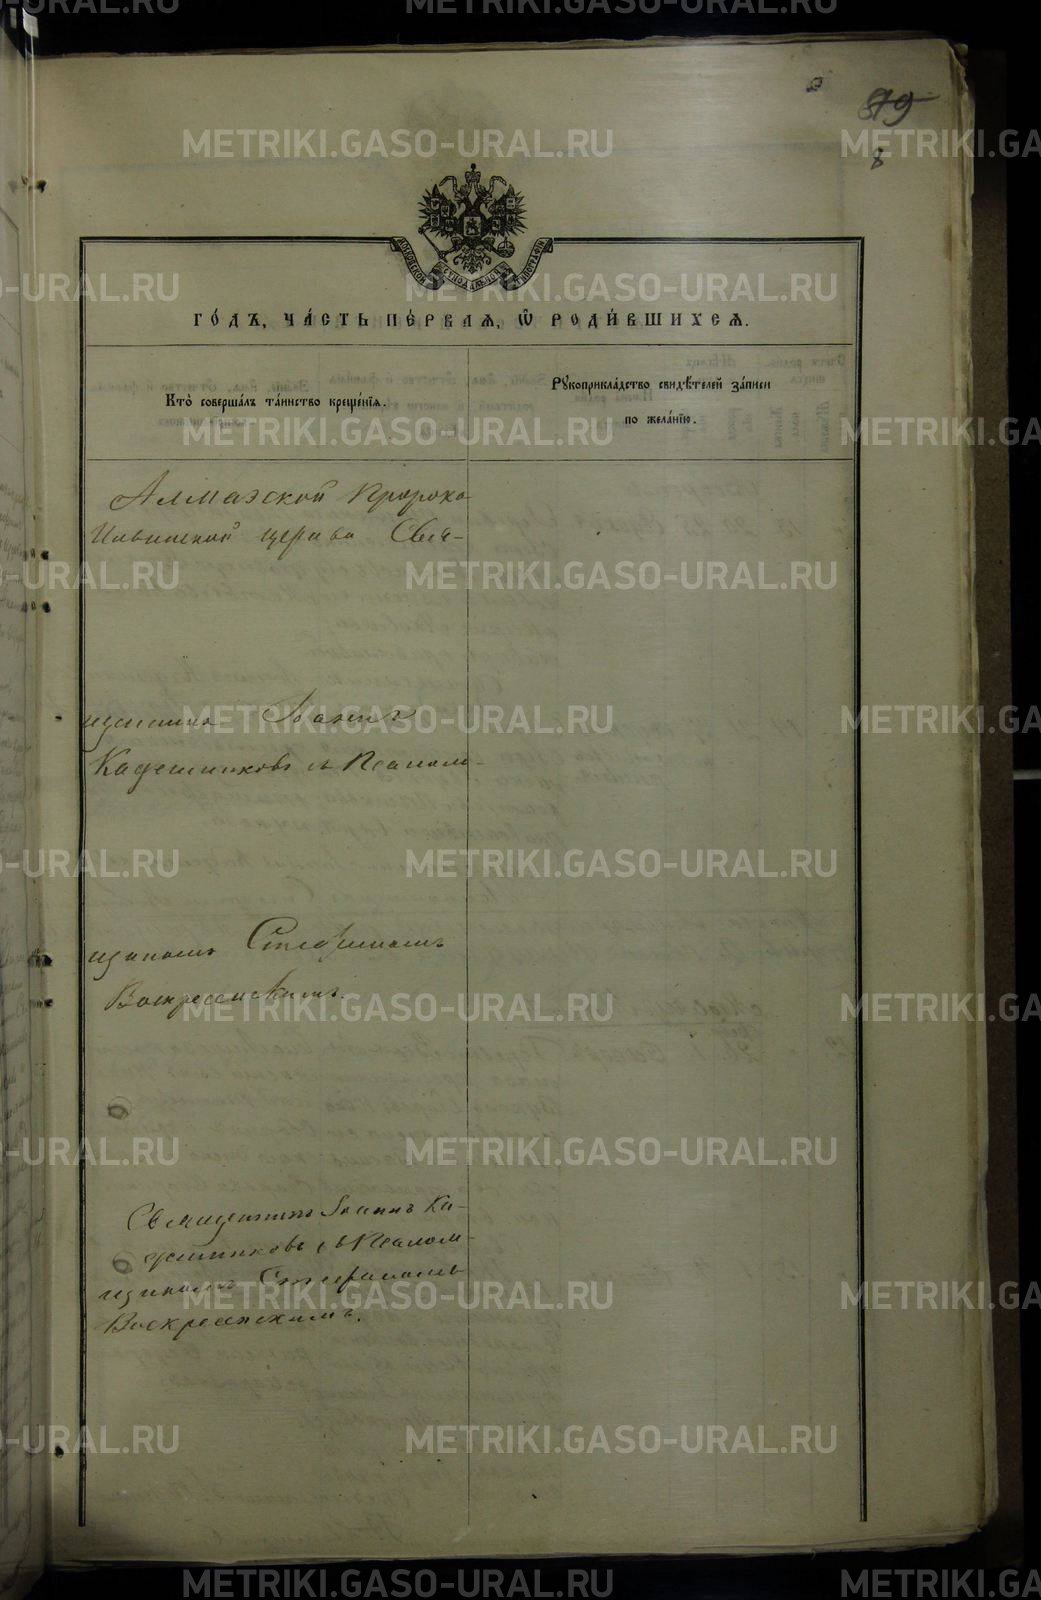 879
8
МОСКОВСКОЙ СѴНОДАЛЬНОЙ ТИПОГРАФІИ
ГО́ДЪ, ЧА́СТЬ ПЕ́РВАЯ, Ѡ҆ РОДИ́ВШИХСЯ.
Кто̀ соверша́лъ та́инство креще́нїѧ.
Рꙋкоприкла́дство свидѣ́телей за́писи
по жела́нїю.
Алмаэской Пророко
Ильинской церкви Свя-
щенникъ Іоаннъ
Кадешниковъ съ Псалом-
щикомъ Стефаномъ
Воскресенскимъ.
Священникъ Іоаннъ Ка-
дешниковъ съ Псалом-
щикомъ Стефаномъ
Воскресенскимъ.
METRIKI.GASO-URAL.RU